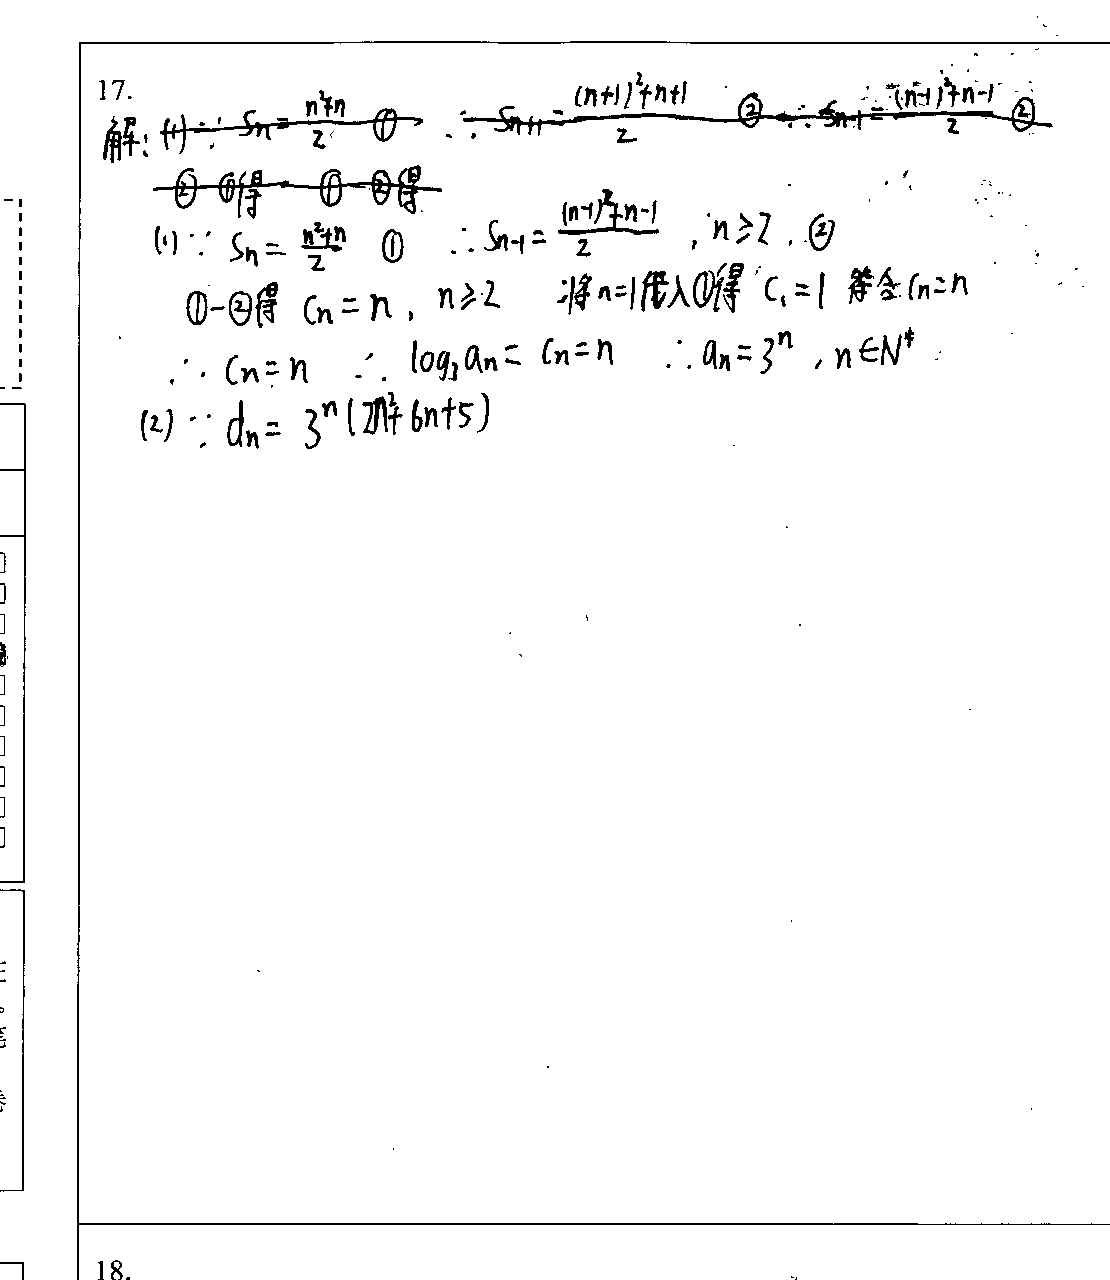 17.
解: (1) ∵ Sn = (n²+n)/2 ① ∴ Sn+1 = ((n+1)²+n+1)/2 ② ∴ Sn-1 = ((n-1)²+n-1)/2 ②
②-①得 ①-②得
(1) ∵ Sn = (n²+n)/2 ① ∴ Sn-1 = ((n-1)²+n-1)/2 , n≥2 . ②
①-②得 Cn = n , n≥2 将n=1代入①得 C₁=1 符合Cn=n
∴ Cn = n ∴ log₃an = Cn = n ∴ an = 3ⁿ , n∈N*
(2) ∵ dn = 3ⁿ(2n²+6n+5)
18.